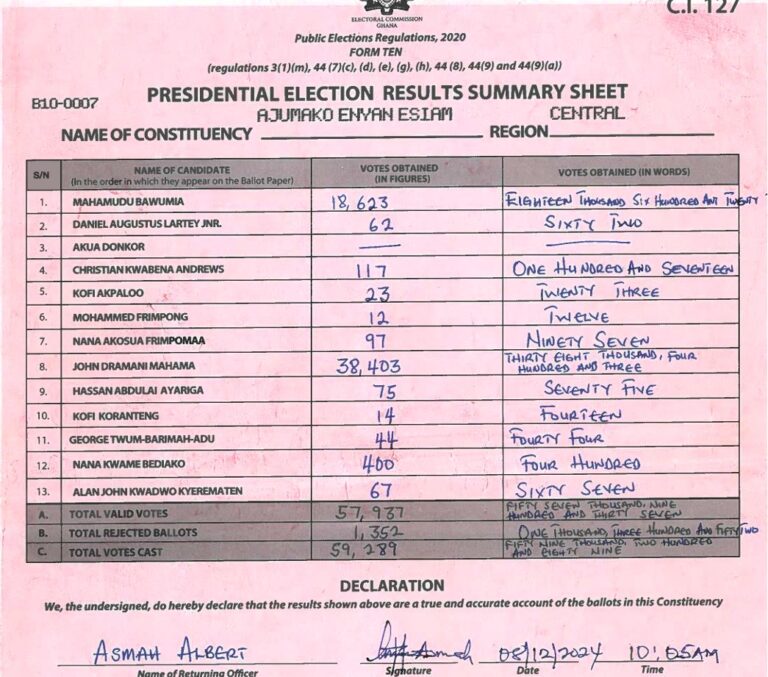 C.I. 127
ELECTORAL COMMISSION
GHANA
Public Elections Regulations, 2020
FORM TEN
(regulations 3(1)(m), 44 (7)(c), (d), (e), (g), (h), 44 (8), 44(9) and 44(9)(a))
B10-0007
PRESIDENTIAL ELECTION RESULTS SUMMARY SHEET
AJUMAKO ENYAN ESIAM CENTRAL
NAME OF CONSTITUENCY REGION
S/N NAME OF CANDIDATE (In the order in which they appear on the Ballot Paper) VOTES OBTAINED (IN FIGURES) VOTES OBTAINED (IN WORDS)
1. MAHAMUDU BAWUMIA 18,623 EIGHTEEN THOUSAND SIX HUNDRED ANT TWENTY T
2. DANIEL AUGUSTUS LARTEY JNR. 62 SIXTY TWO
3. AKUA DONKOR — —
4. CHRISTIAN KWABENA ANDREWS 117 ONE HUNDRED AND SEVENTEEN
5. KOFI AKPALOO 23 TWENTY THREE
6. MOHAMMED FRIMPONG 12 TWELVE
7. NANA AKOSUA FRIMPOMAA 97 NINETY SEVEN
8. JOHN DRAMANI MAHAMA 38,403 THIRTY EIGHT THOUSAND, FOUR HUNDRED AND THREE
9. HASSAN ABDULAI AYARIGA 75 SEVENTY FIVE
10. KOFI KORANTENG 14 FOURTEEN
11. GEORGE TWUM-BARIMAH-ADU 44 FOURTY FOUR
12. NANA KWAME BEDIAKO 400 FOUR HUNDRED
13. ALAN JOHN KWADWO KYEREMATEN 67 SIXTY SEVEN
A. TOTAL VALID VOTES 57,937 FIFTY SEVEN THOUSAND, NINE HUNDRED AND THIRTY SEVEN
B. TOTAL REJECTED BALLOTS 1,352 ONE THOUSAND, THREE HUNDRED AND FIFTY TWO
C. TOTAL VOTES CAST 59,289 FIFTY NINE THOUSAND, TWO HUNDRED AND EIGHTY NINE
DECLARATION
We, the undersigned, do hereby declare that the results shown above are a true and accurate account of the ballots in this Constituency
ASMAH ALBERT 08/12/2024 10:05AM
Name of Returning Officer Signature Date Time